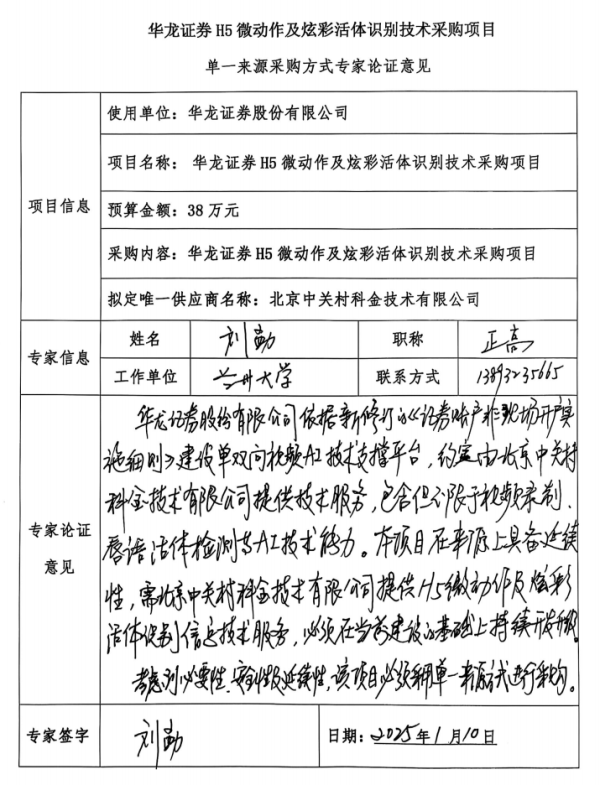 华龙证券 H5 微动作及炫彩活体识别技术采购项目
单一来源采购方式专家论证意见
项目信息
使用单位：华龙证券股份有限公司
项目名称： 华龙证券 H5 微动作及炫彩活体识别技术采购项目
预算金额：38 万元
采购内容：华龙证券 H5 微动作及炫彩活体识别技术采购项目
拟定唯一供应商名称：北京中关村科金技术有限公司
专家信息
姓名 刘勐 职称 正高
工作单位 兰州大学 联系方式 13893235665
专家论证
意见
华龙证券股份有限公司依据新修订的《证券账户非现场开户实
施细则》建设单双向视频AI技术支撑平台，约定由北京中关村
科金技术有限公司提供技术服务，包含但不限于视频录制、
唇语活体检测等AI技术能力。本项目在来源上具备延续
性，需北京中关村科金技术有限公司提供H5微动作及炫彩
活体识别信息技术服务，必须在当前建设的基础上持续开发升级。
考虑到必要性、安全性及延续性，该项目必须采用单一来源方式进行采购。
专家签字 刘勐 日期：2025年1月10日